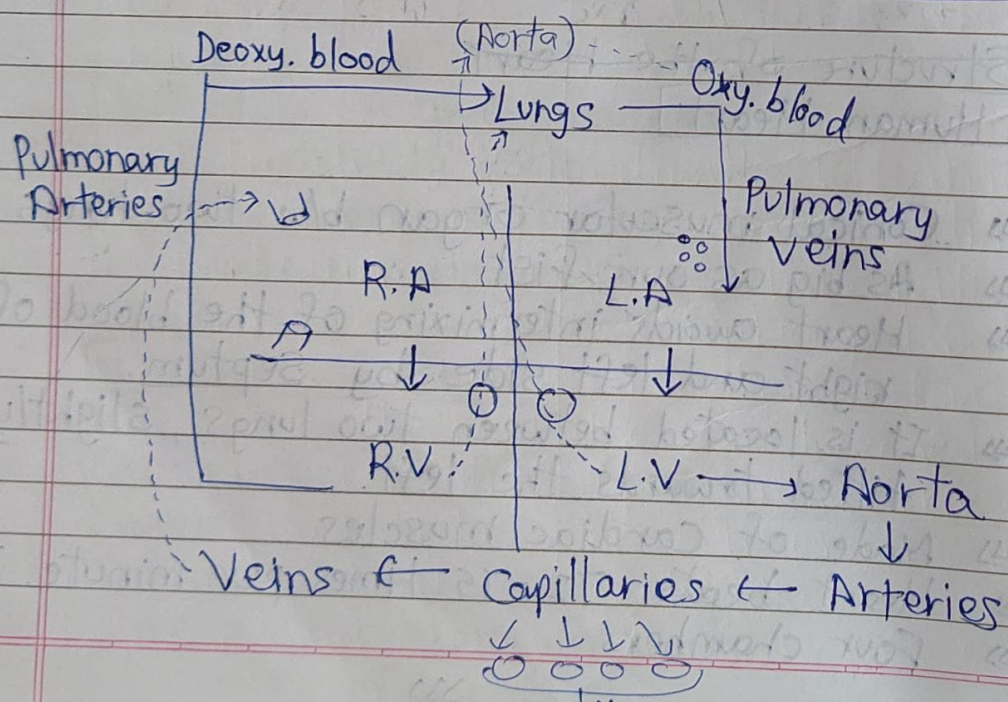 Deoxy. blood (Aorta)
Lungs Oxy. blood
Pulmonary
Arteries
Pulmonary
veins
R.A L.A
R.V L.V Aorta
Veins Capillaries Arteries